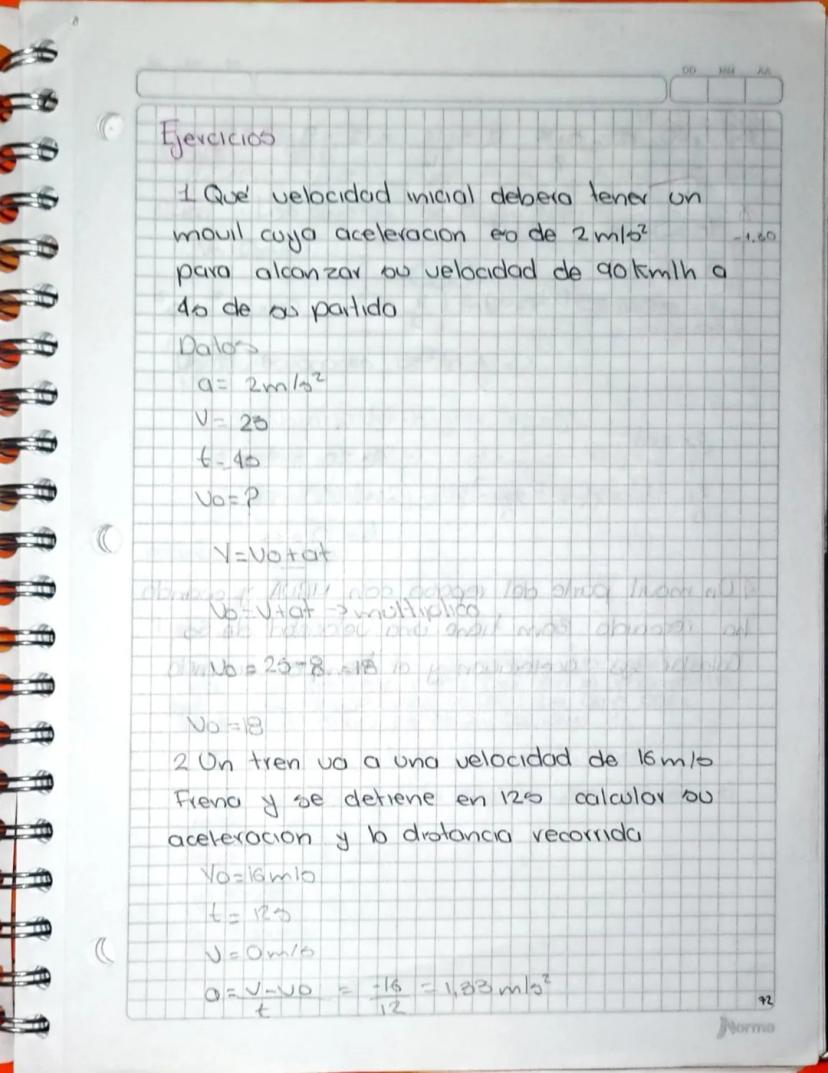 DD MM AA
Ejercicios
1 Qué velocidad inicial debera tener un
movil cuya aceleracion es de 2m/s²
-1.60
para alcanzar su velocidad de 90km/h a
4s de su partida
Datos
a= 2m/s²
V= 25
t=4s
Vo=?
V=Vo+at
Vo=V+at → multiplica
Vo = 25-8 = 18
Vo=18
2 Un tren va a una velocidad de 16m/s
Frena y se detiene en 12s calcular su
aceleracion y la distancia recorrida
Vo=16m/s
t= 12s
V=0m/s
a= V-Vo/t = -16/12 = 1,33 m/s²
72
Norma